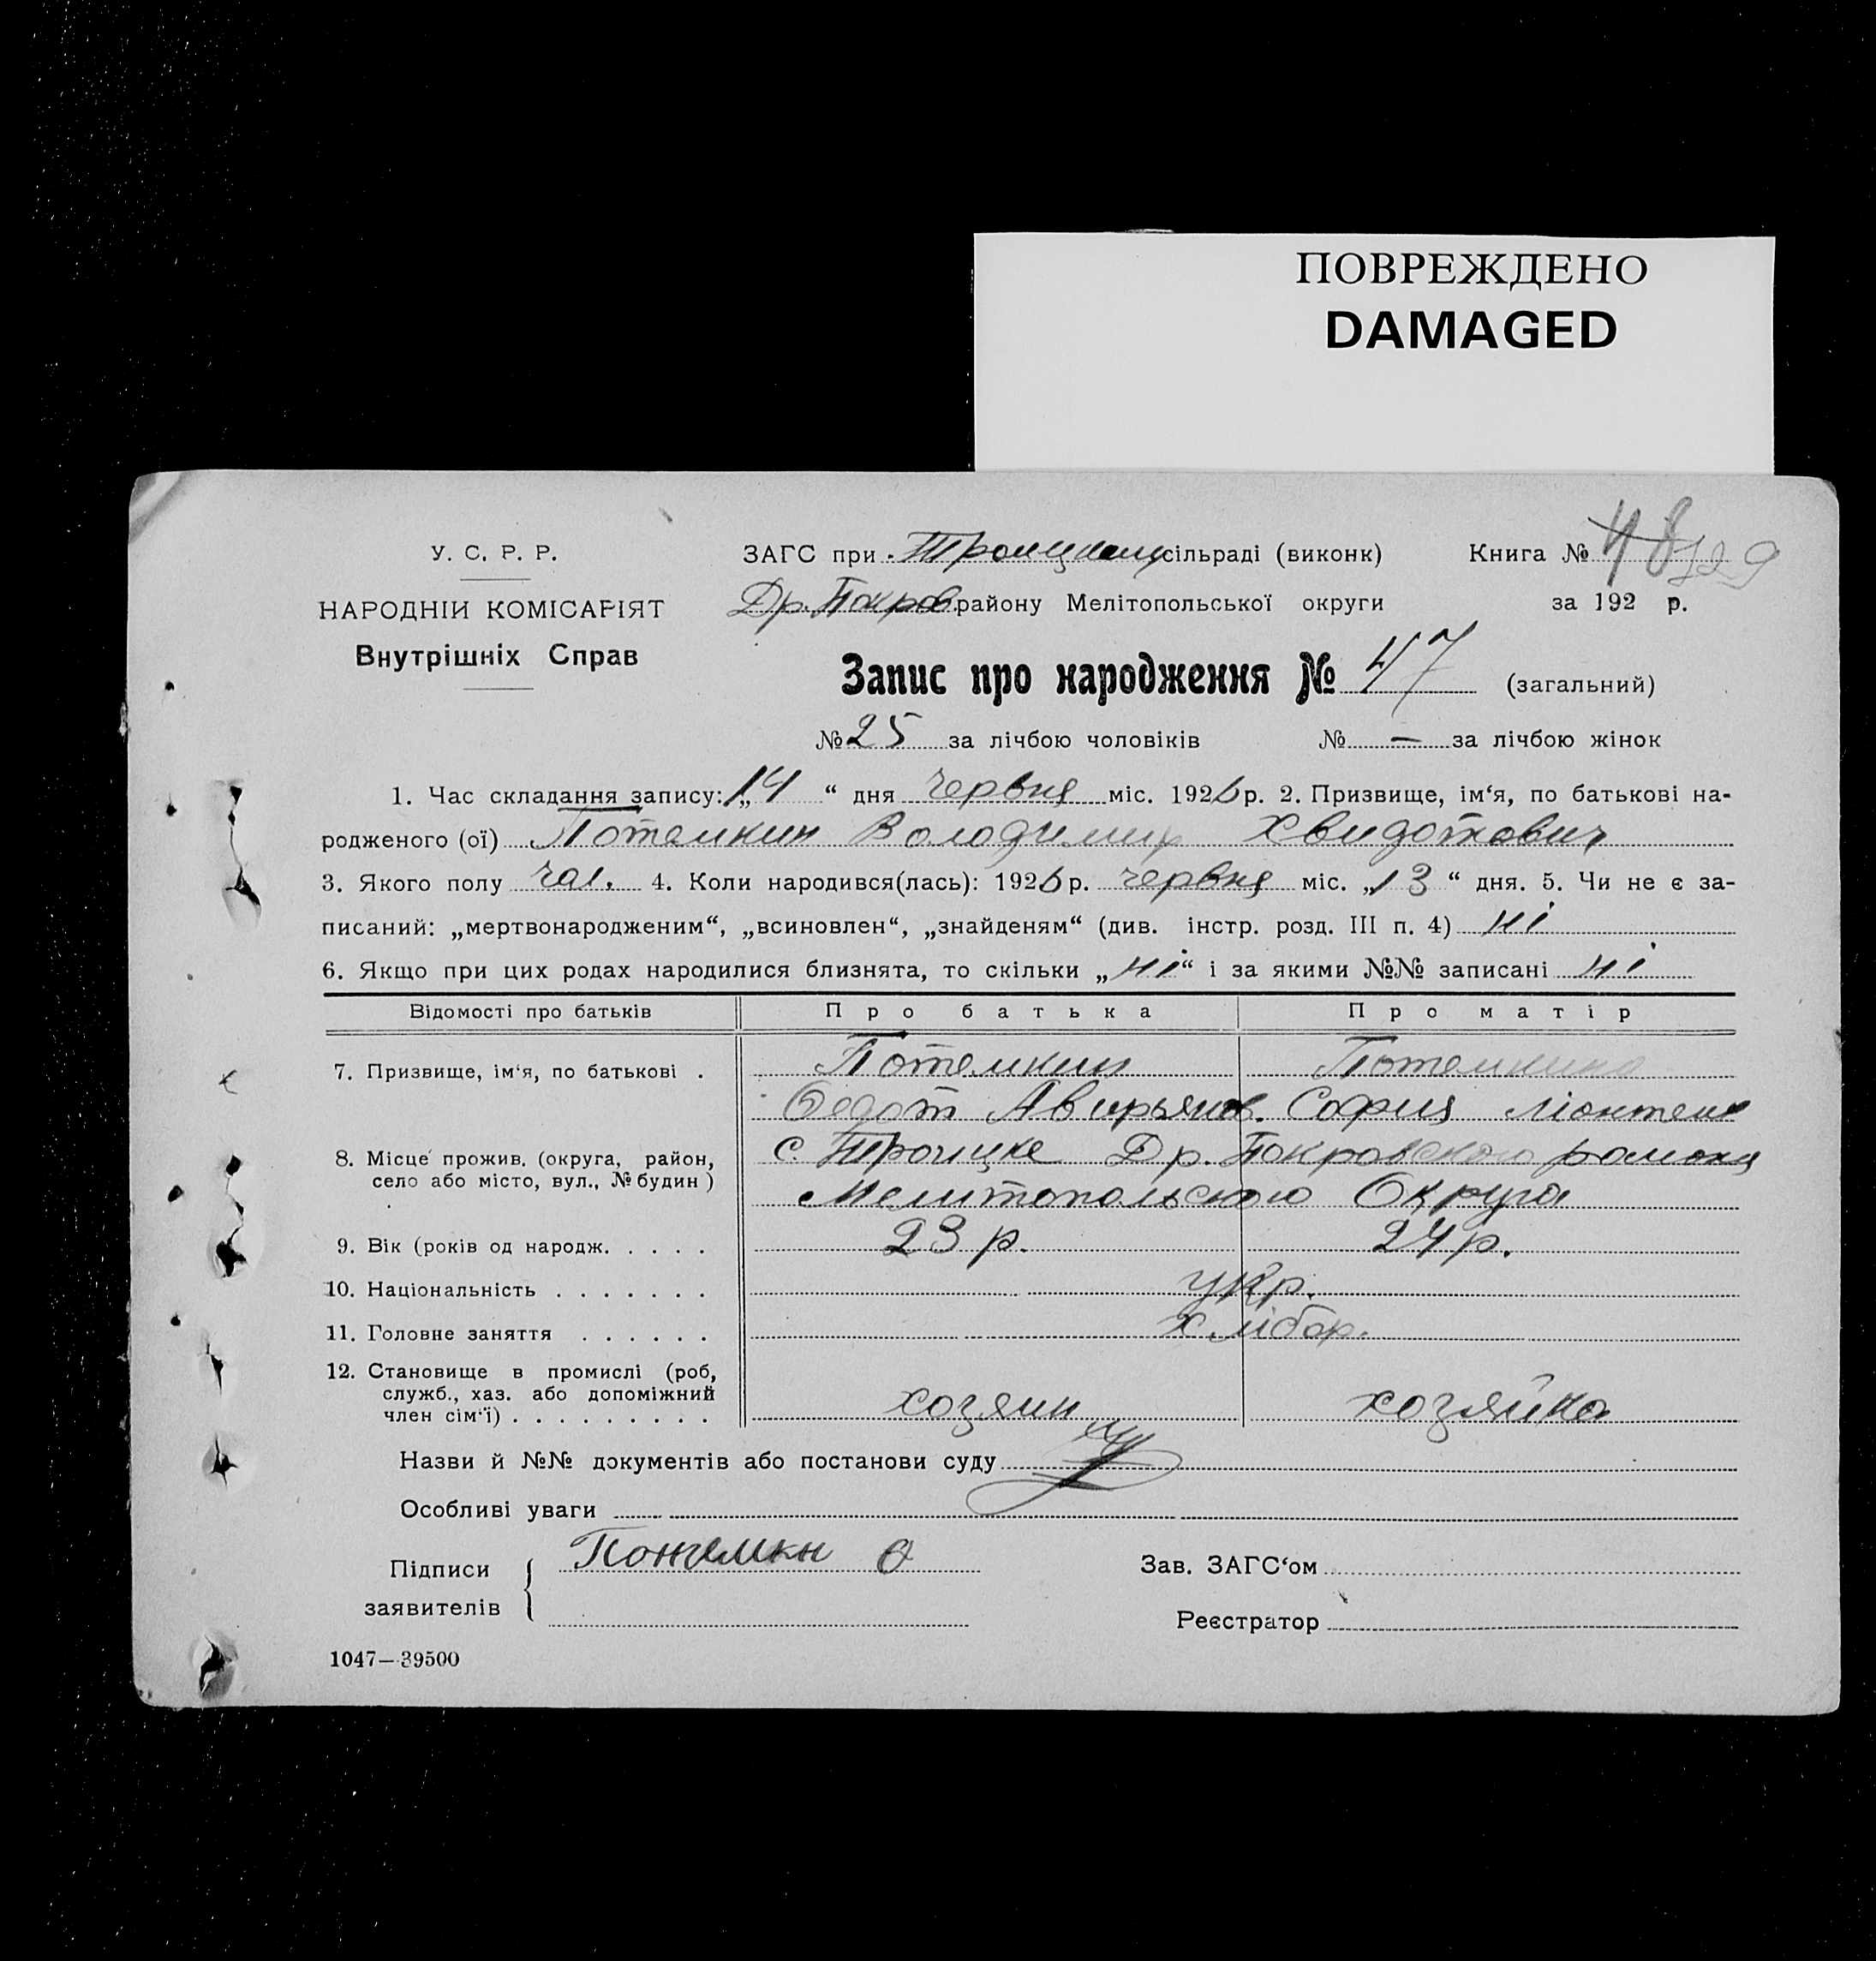 ПОВРЕЖДЕНО
DAMAGED
У. С. Р. Р.
НАРОДНІЙ КОМІСАРІЯТ
Внутрішніх Справ
ЗАГС при Троицкому сільраді (виконк)
Др. Покров. району Мелітопольської округи
Книга № 48 129
за 192 р.
Запис про народження № 47 (загальний)
№ 25 за лічбою чоловіків № — за лічбою жінок
1. Час складання запису: „14“ дня червня міс. 1926 р. 2. Призвище, ім‘я, по батькові на-
родженого (ої) Потемкин Володимир Хвидотович
3. Якого полу чол. 4. Коли народився(лась): 1926 р. червня міс. „13“ дня. 5. Чи не є за-
писаний: „мертвонародженим“, „всиновлен“, „знайденям“ (див. інстр. розд. III п. 4) ні
6. Якщо при цих родах народилися близнята, то скільки „ні“ і за якими №№ записані ні
Відомості про батьків Про батька Про матір
7. Призвище, ім‘я, по батькові . Потемкин Потемкина
Федот Авирьянов. София
8. Місце прожив. (округа, район,
село або місто, вул., № будин )
с. Троицке Др. Покровского района
Мелитопольского Округа
9. Вік (років од народж. . . . . 23 р. 24 р.
10. Національність . . . . . . . укр.
11. Головне заняття . . . . . . хлібор.
12. Становище в промислі (роб,
служб., хаз. або допоміжний
член сім‘ї) . . . . . . . . . хозяин хозяйка
Назви й №№ документів або постанови суду
Особливі уваги
Підписи
заявителів
Потемкн Ф
Зав. ЗАГС‘ом
Реєстратор
1047—39500